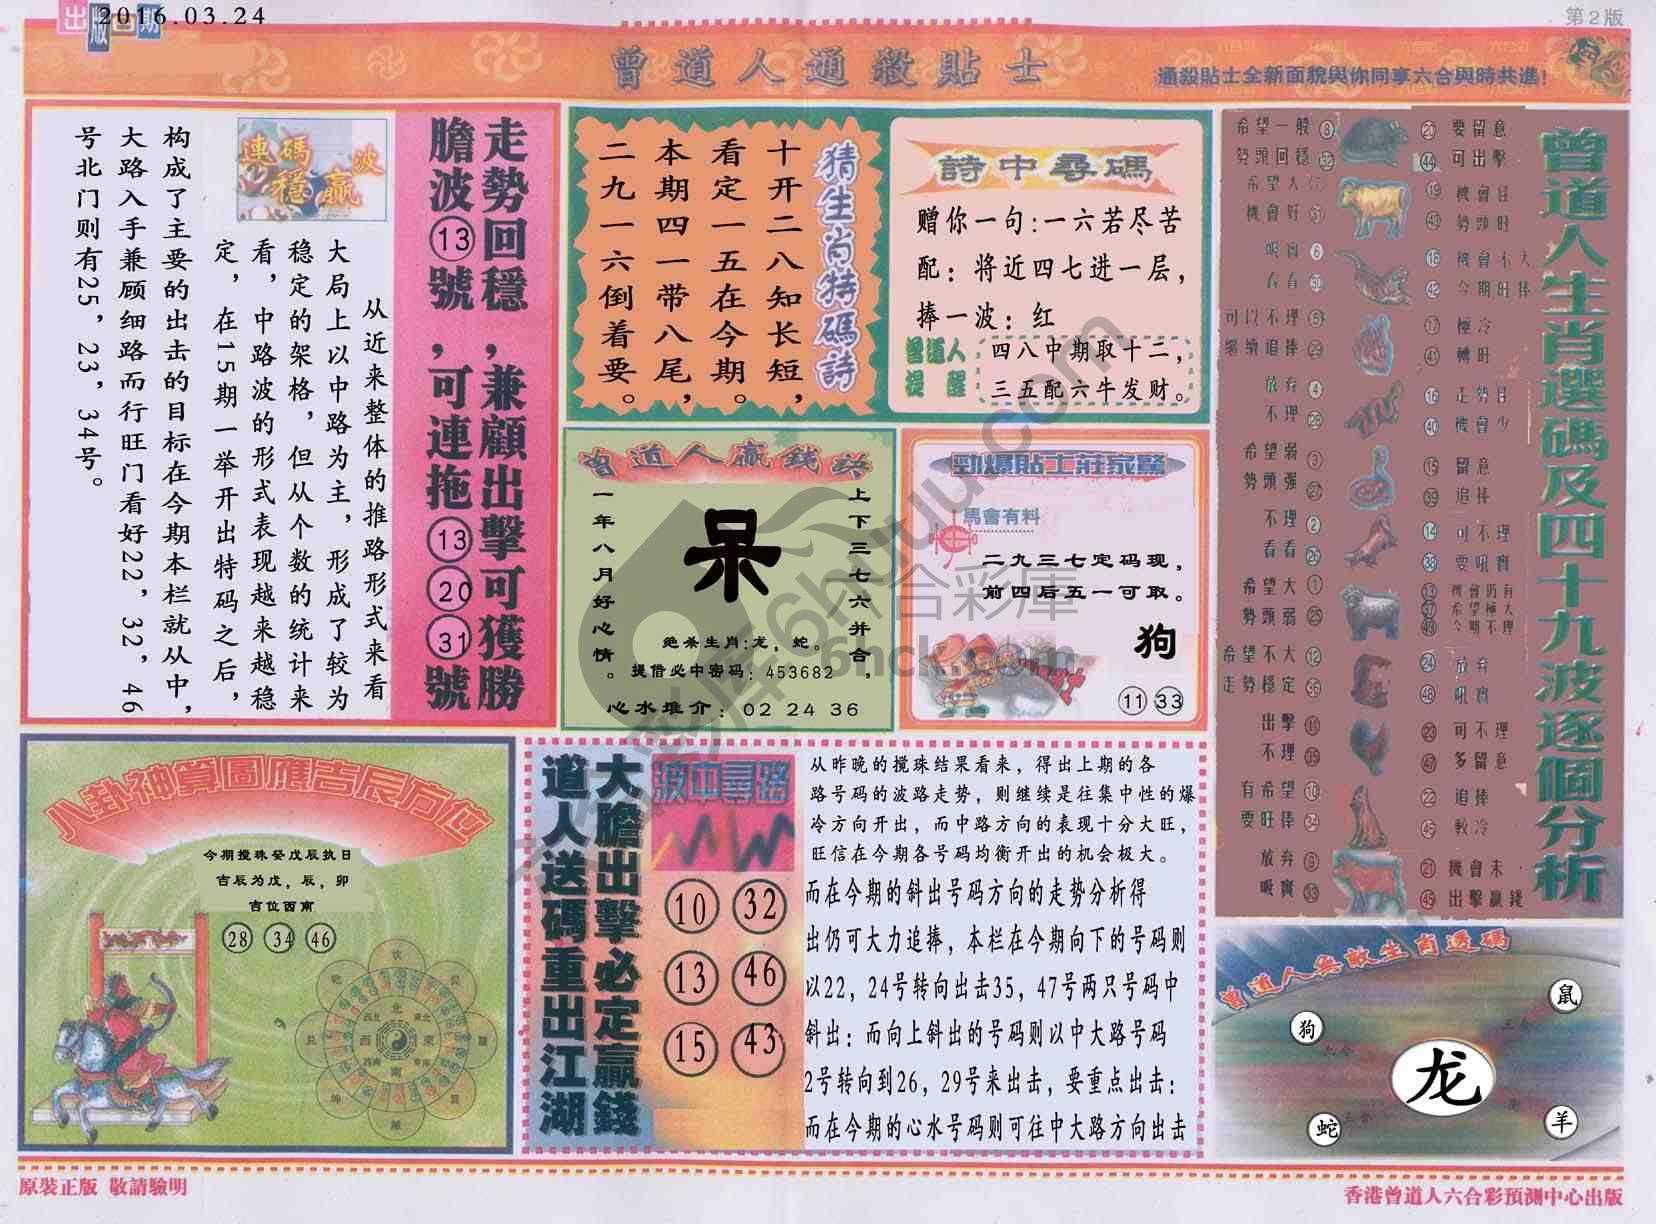 出版日期
2016.03.24
第2版
曾道人通殺貼士
通殺貼士全新面貌與你同享六合與時共進!
走勢回穩,兼顧出擊可獲勝
膽波⑬號,可連拖⑬⑳㉛號
連碼穩贏波
从近来整体的推路形式来看
大局上以中路为主,形成了较为
稳定的架格,但从个数的统计来
看,中路波的形式表现越来越稳
定,在15期一举开出特码之后,
构成了主要的出击的目标在今期本栏就从中,
大路入手兼顾细路而行旺门看好22,32,46
号北门则有25,23,34号。
猜生肖特碼詩
十开二八知长短,
看定一五在今期。
本期四一带八尾,
二九一六倒着要。
詩中尋碼
赠你一句:一六若尽苦
配:将近四七进一层,
捧一波:红
曾道人提醒
四八中期取十二,
三五配六牛发财。
曾道人贏錢訣
上下三七六并合,
一年八月好心情。
呆
绝杀生肖:龙,蛇。
提借必中密码:453682
心水推介:02 24 36
勁爆貼士莊家驚
馬會有料
二九三七定码现,
前四后五一可取。
狗
11 33
曾道人生肖選碼及四十九波逐個分析
希望一般 8
20 要留意
勢頭回穩 32
44 可出擊
希望大
19 機會旺
機會好 31
43 勢頭旺
吸實 6
18 機會不大
看看 30
42 今期旺捧
可以不理 5
17 極冷
繼續追捧 29
41 轉旺
放弃 4
16 走勢旺
不理 28
40 機會少
希望弱 3
15 留意
勢頭强 27
39 追捧
不理 2
14 可不理
看看 26
38 要吼實
希望大 1
13 機會仍有
37 希望極大
勢頭弱 25
49 今期不理
希望不大 12
24 放弃
走勢穩定 36
48 吼實
出擊 11
23 可不理
不理 35
47 多留意
有希望 10
22 追捧
要旺捧 34
放弃 9
21 機會未
吸實 33
45 出擊贏錢
八卦神算圖應吉辰方位
今期搅珠癸戊辰执日
吉辰为戊,辰,卯
吉位西南
28 34 46
大膽出擊必定贏錢
道人送碼重出江湖
波中尋路
10 32
13 46
15 43
从昨晚的搅珠结果看来,得出上期的各
路号码的波路走势,则继续是往集中性的爆
冷方向开出,而中路方向的表现十分大旺,
旺信在今期各号码均衡开出的机会极大。
而在今期的斜出号码方向的走势分析得
出仍可大力追捧,本栏在今期向下的号码则
以22,24号转向出击35,47号两只号码中
斜出:而向上斜出的号码则以中大路号码
2号转向到26,29号来出击,要重点出击:
而在今期的心水号码则可往中大路方向出击
曾道人無敵生肖選碼
鼠
狗
龙
蛇
羊
原裝正版 敬請驗明
香港曾道人六合彩預測中心出版
六合彩庫
6hck.com